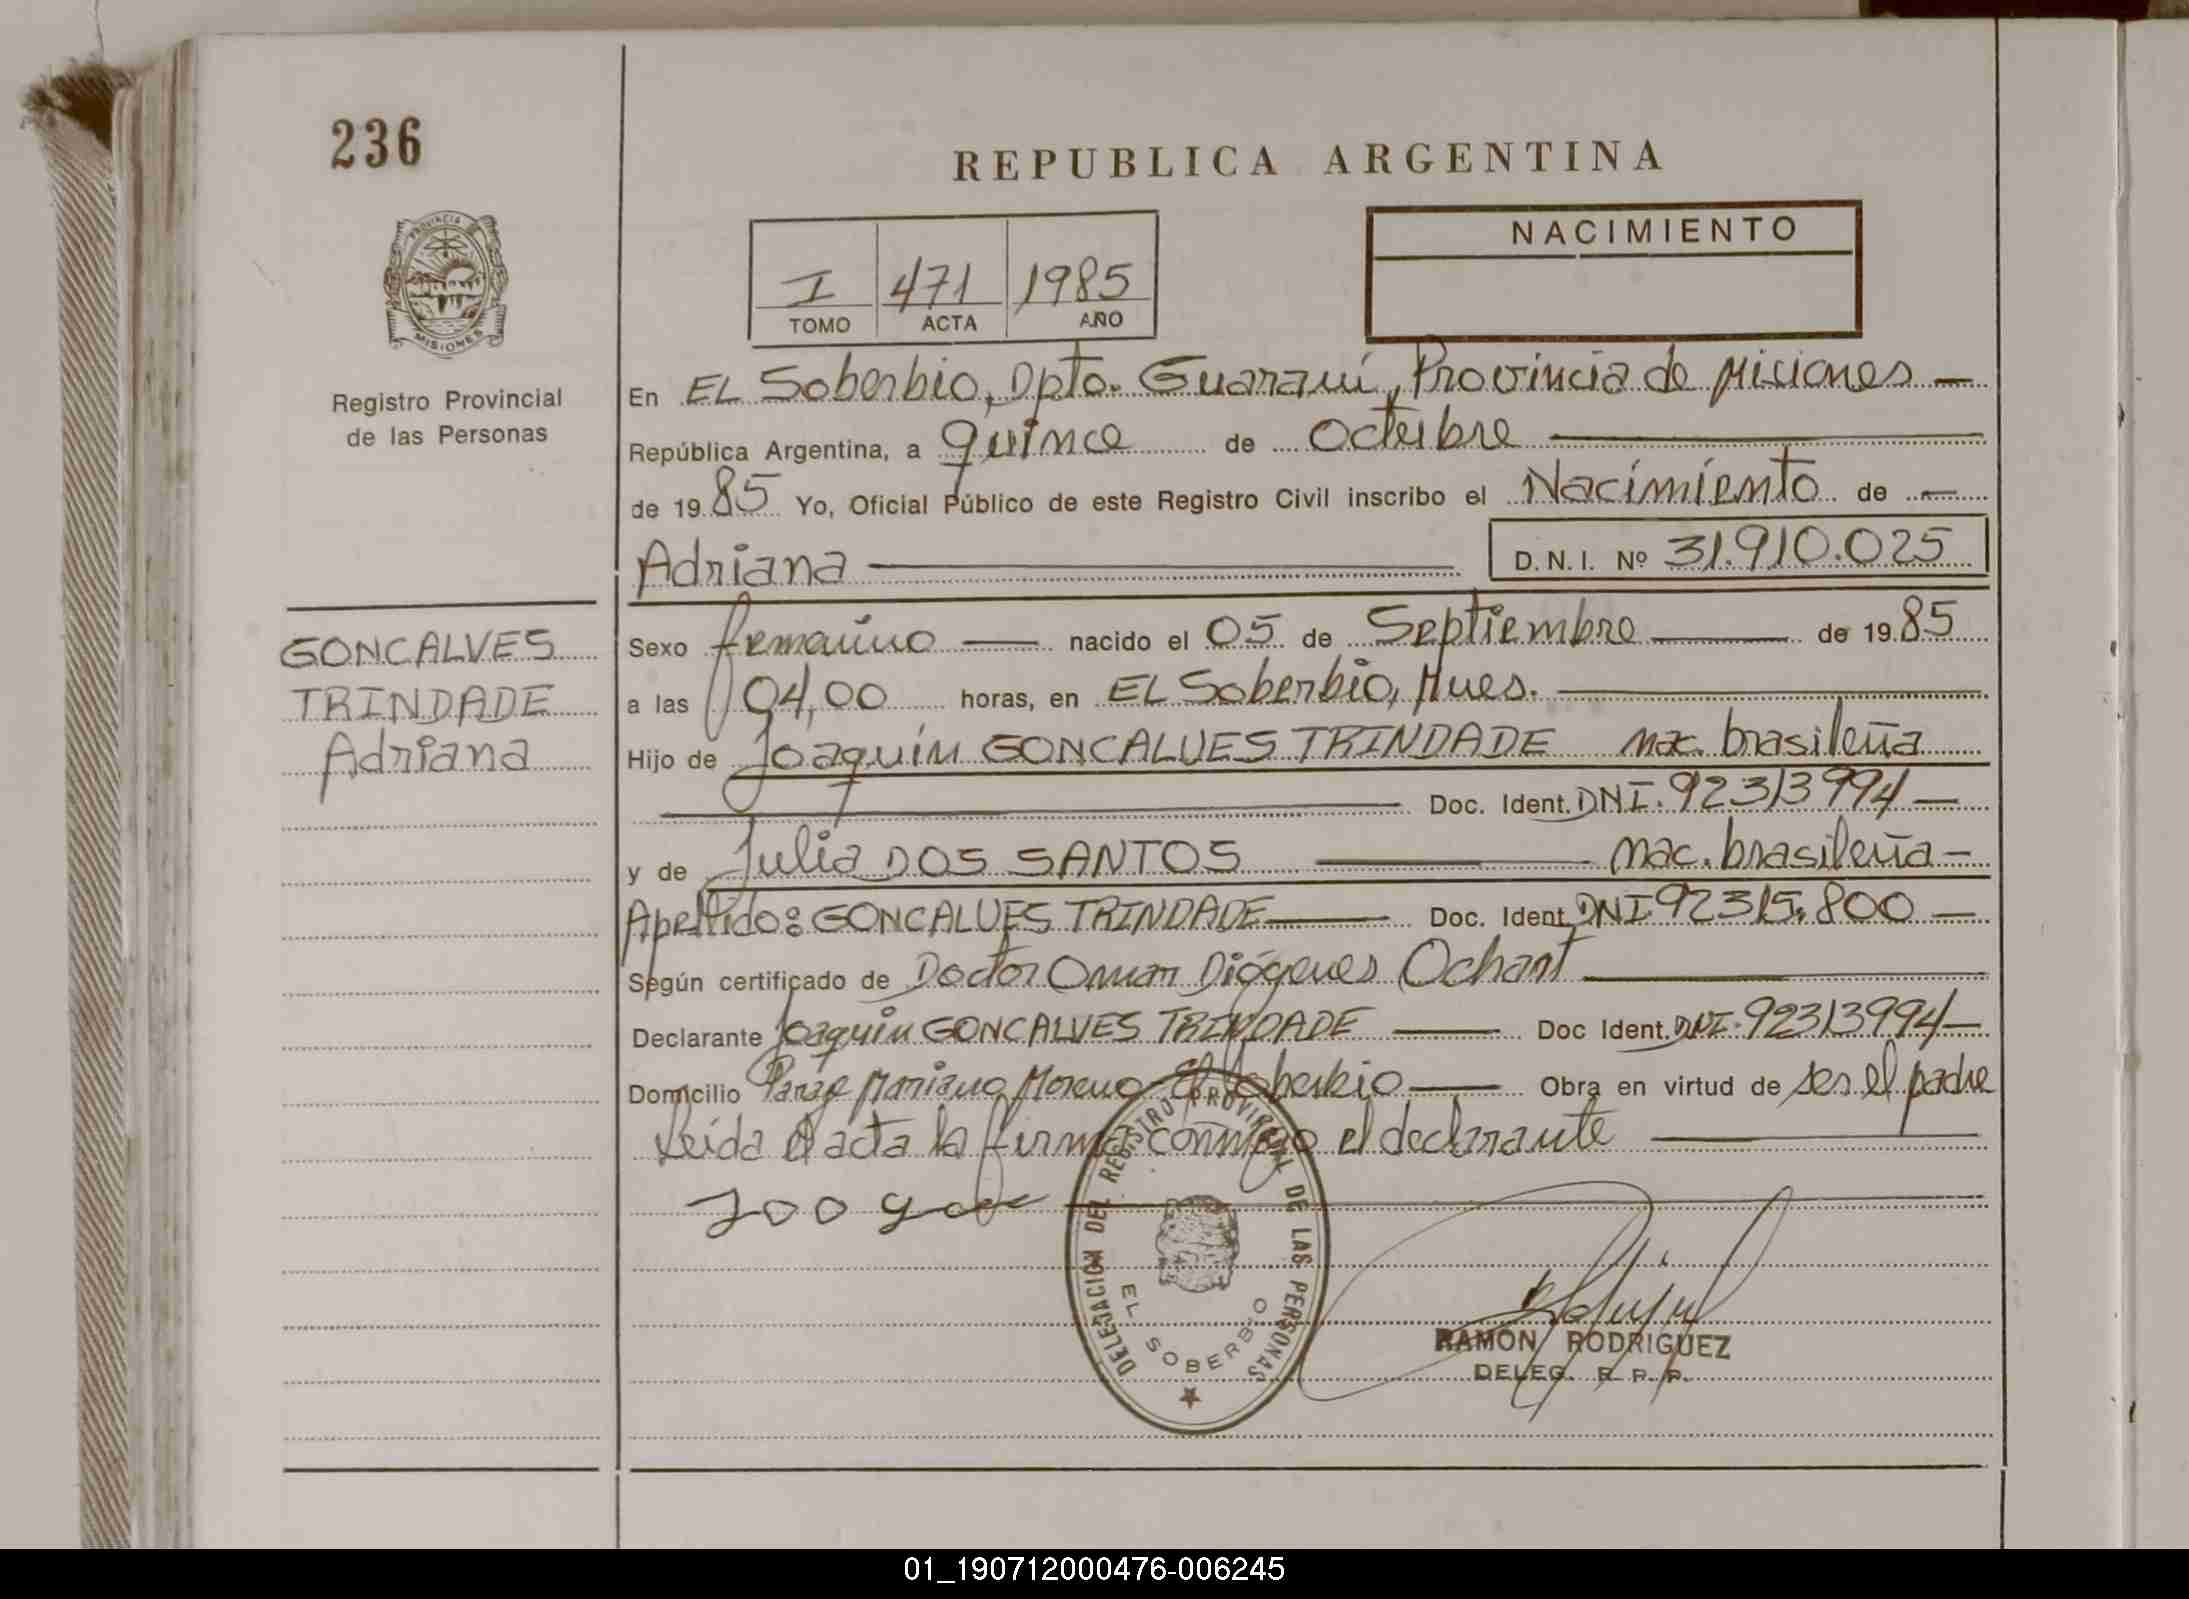 236
REPUBLICA ARGENTINA
PROVINCIA
MISIONES
Registro Provincial
de las Personas
I 471 1985
TOMO ACTA AÑO
NACIMIENTO
En EL Soberbio, Dpto. Guaraní, Provincia de Misiones —
República Argentina, a quince de Octubre
de 1985 Yo, Oficial Público de este Registro Civil inscribo el Nacimiento de —
Adriana D.N.I. Nº 31.910.025
GONCALVES
TRINDADE
Adriana
Sexo femenino — nacido el 05 de Septiembre — de 1985
a las 04,00 horas, en EL Soberbio, Mnes.
Hijo de Joaquín GONCALVES TRINDADE nac. brasileña
Doc. Ident. DNI. 92313994 —
y de Julia DOS SANTOS — nac. brasileña —
Apellido: GONCALVES TRINDADE — Doc. Ident. DNI 92315.800 —
Según certificado de Doctor Omar Diógenes Ochant
Declarante Joaquín GONCALVES TRINDADE — Doc Ident. DNI. 92313994 —
Domicilio Paraje Mariano Moreno El Soberbio — Obra en virtud de ser el padre
Leída el acta la firma conmigo el declarante
DELEGACION DEL REGISTRO PROVINCIAL DE LAS PERSONAS
EL SOBERBIO
RAMON RODRIGUEZ
DELEG. R. P. P.
01_190712000476-006245